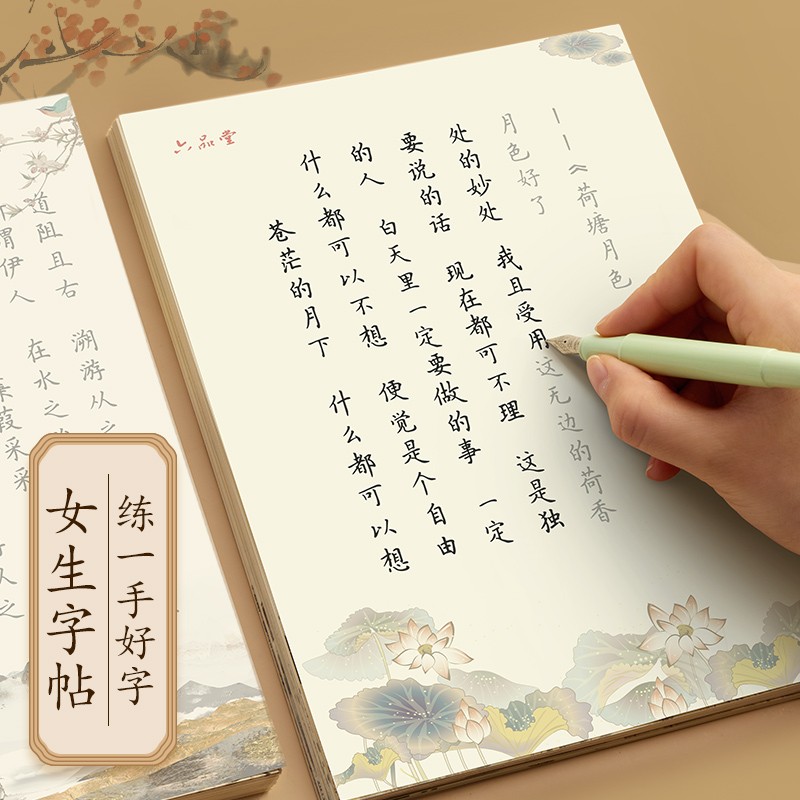 六品堂
苍茫的月下 什么都可以想
什么都可以不想 便觉是个自由
的人 白天里一定要做的事 一定
要说的话 现在都可不理 这是独
处的妙处 我且受用这无边的荷香
月色好了
——《荷塘月色
葭采采
谓伊人 在水之
道阻且右 溯游从之
女生字帖
练一手好字